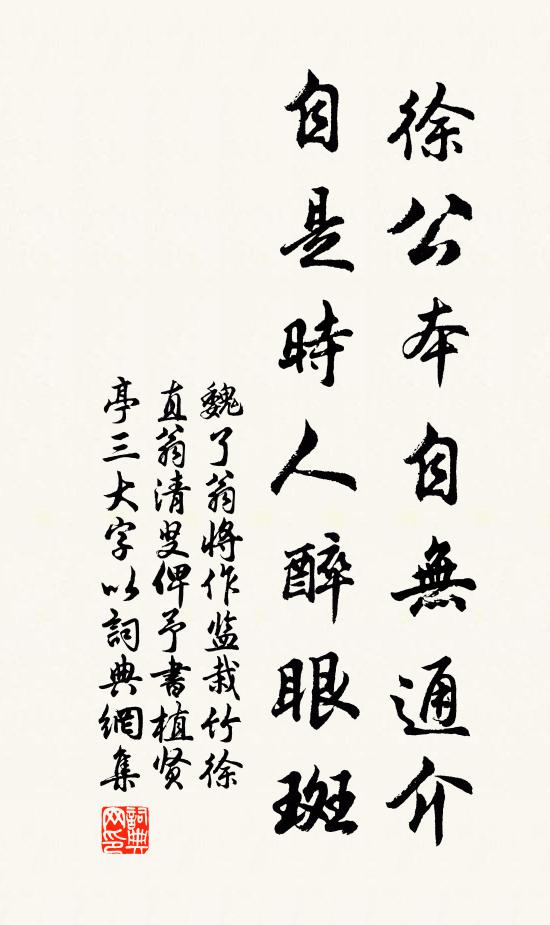 徐公本自無通介
自是時人醉眼斑
魏了翁將作监栽竹徐
直翁清叟俾予書植贤
亭三大字以詞典網集
詞典網印